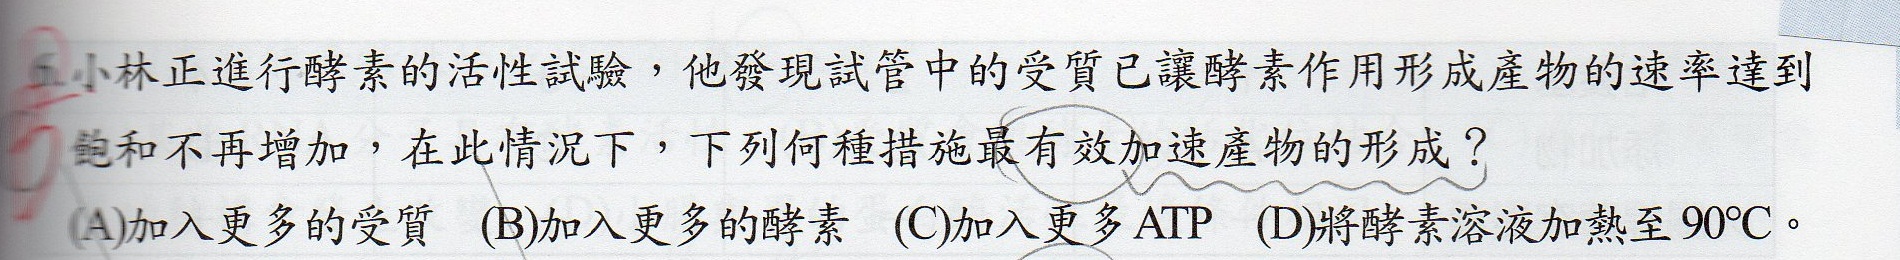 6.小林正進行酵素的活性試驗，他發現試管中的受質已讓酵素作用形成產物的速率達到
飽和不再增加，在此情況下，下列何種措施最有效加速產物的形成？
(A)加入更多的受質 (B)加入更多的酵素 (C)加入更多ATP (D)將酵素溶液加熱至90°C。